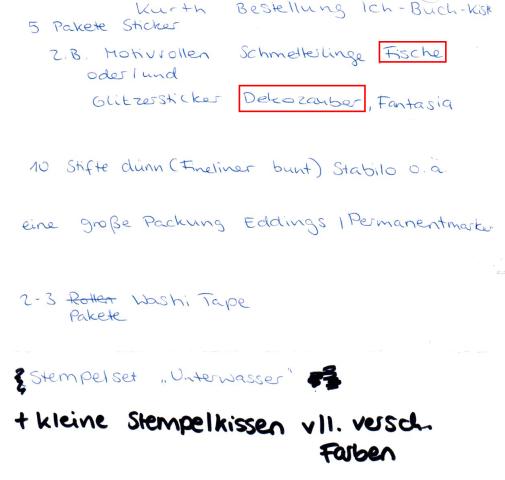 Kurth Bestellung Ich-Buch-Kiste
5 Pakete Sticker
z.B. Motivrollen Schmetterlinge Fische
oder/und
Glitzersticker Dekozauber, Fantasia
10 Stifte dünn (Fineliner bunt) Stabilo o.ä.
eine große Packung Eddings / Permanentmarker
2-3 Rollen Washi Tape
Pakete
Stempelset „Unterwasser"
+ kleine Stempelkissen vll. versch.
Farben